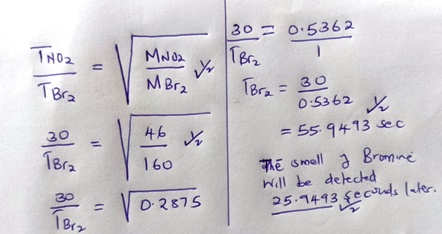 TNO2 / TBr2 = √(MNO2 / MBr2) ½
30 / TBr2 = √(46 / 160) ½
30 / TBr2 = √0.2875
30 / TBr2 = 0.5362 / 1
TBr2 = 30 / 0.5362 ½
= 55.9493 sec
The smell of Bromine
will be detected
25.9493 seconds later. ½